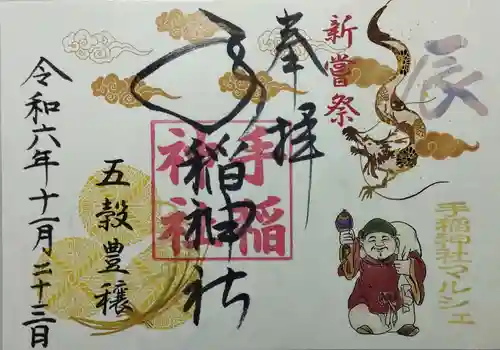 辰
新嘗祭
奉拝
手稲神社
手稲神社
五穀豊穣
令和六年十一月二十三日
手稲神社マルシェ